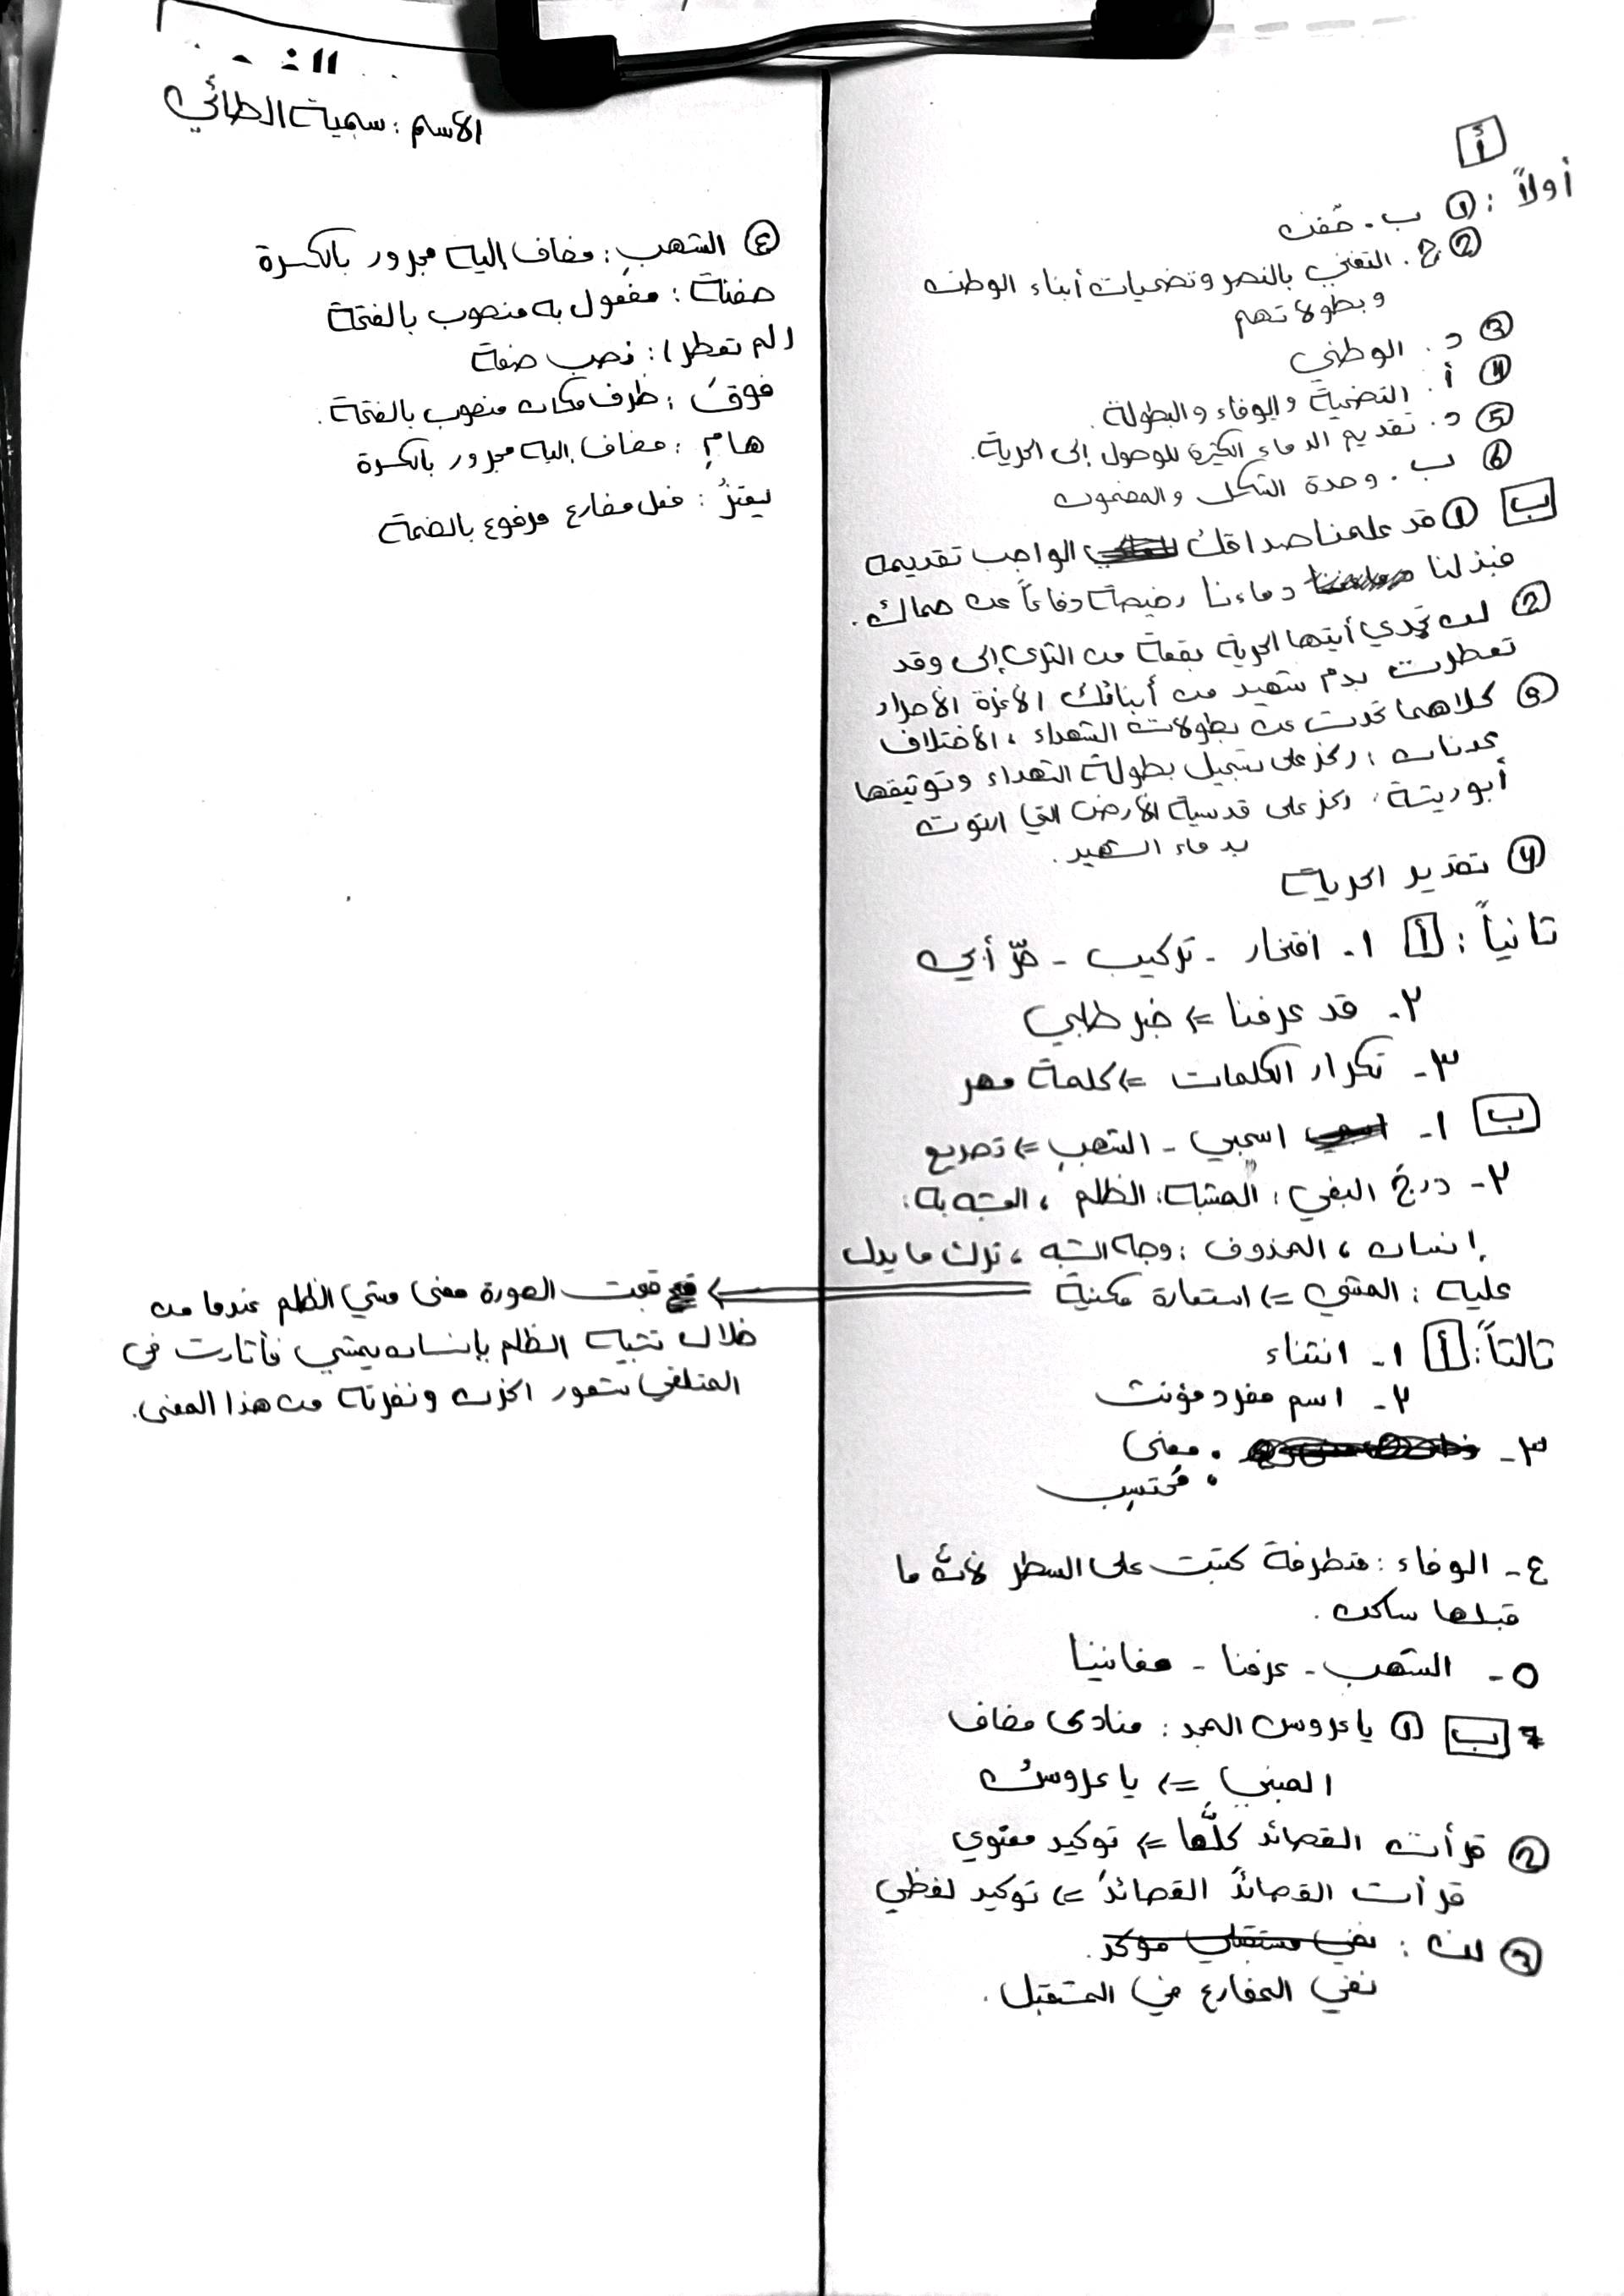 الاسم : سمية الطائي
أ
أولاً : ① ب . حُفَن
② ج . التغني بالنصر وتضحيات أبناء الوطن
وبطولاتهم
③ د . الوطني
④ أ . التضحية والوفاء والبطولة .
⑤ د . تقديم الدماء الكثيرة للوصول إلى الحرية .
⑥ ب . وحدة الشكل والمضمون
ب ① قد علمنا صداقك الواجب تقديمه
فبذلنا دماءنا رخيصة دفاعاً عن حماك .
② لن تجدي أيتها الحرية بقعة من الثرى إلى وقد
تعطرت بدم شهيد من أبنائك الأعزة الأحرار
③ كلاهما تحدث عن بطولات الشهداء ، الأختلاف
عدنان : ركز على تسجيل بطولة الشهداء وتوثيقها
أبو ريشة : ركز على قدسية الأرض التي ارتوت
بدماء الشهيد .
④ تقدير الحرية
ثانياً : أ ١- افتخار - تركيب - حرّ أبي
٢- قد عرفنا => خبر طلبي
٣- تكرار الكلمات => كلمة مهر
ب ١- اسحبي - الشهبِ => تصريع
٢- درج البغي : المشبه : الظلم ، المشبه به :
إنسان ، المحذوف : وجه الشبه ، ترك ما يدل
عليه : المشي => استعارة مكنية
قبحت الصورة معنى مشي الظلم عندما من
خلال تشبيه الظلم بإنسان يمشي فأثارت في
المتلقي شعور الحزن ونفرته من هذا المعنى .
ثالثاً : أ ١- انتشاء
٢- اسم مفرد مؤنث
٣- • معنى
• مُحتسِب
٤- الوفاء : متطرفة كتبت على السطر لأنّ ما
قبلها ساكن .
٥- الشهب - عرفنا - مغانينا
ب ① يا عروس المجد : منادى مضاف
المبني => يا عروسُ
② قرأت القصائد كلَّها => توكيد معنوي
قرأت القصائدَ القصائدَ => توكيد لفظي
③ لن : نفي مستقبلي مؤكد .
نفي المضارع في المستقبل .
④ الشهبِ : مضاف إليه مجرور بالكسرة
حفنة : مفعول به منصوب بالفتحة
(لم تعطر) : نصب صفة
فوقَ : ظرف مكان منصوب بالفتحة .
هامِ : مضاف إليه مجرور بالكسرة
: فعل مضارع مرفوع بالضمة